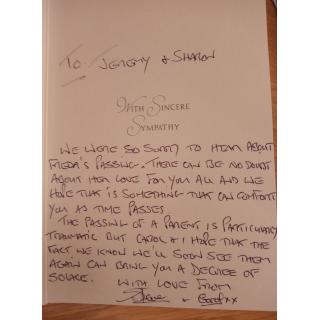 To Jeremy & Sharon
With Sincere
Sympathy
We were so sorry to hear about
Freda's passing. There can be no doubt
about her love for you all and we
hope that is something that can comfort
you as time passes.
The passing of a parent is particularly
traumatic but Carol & I hope that the
fact we know we'll soon see them
again can bring you a degree of
solace.
With love from
Steve & Carol xx